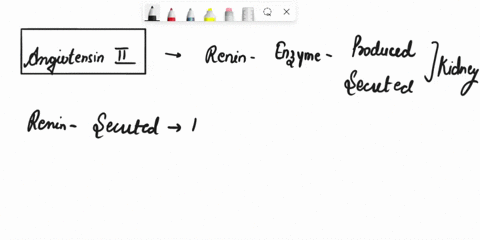 Angiotensin II → Renin - Enzyme - Produced
Secreted ] Kidney
Renin - Secreted →